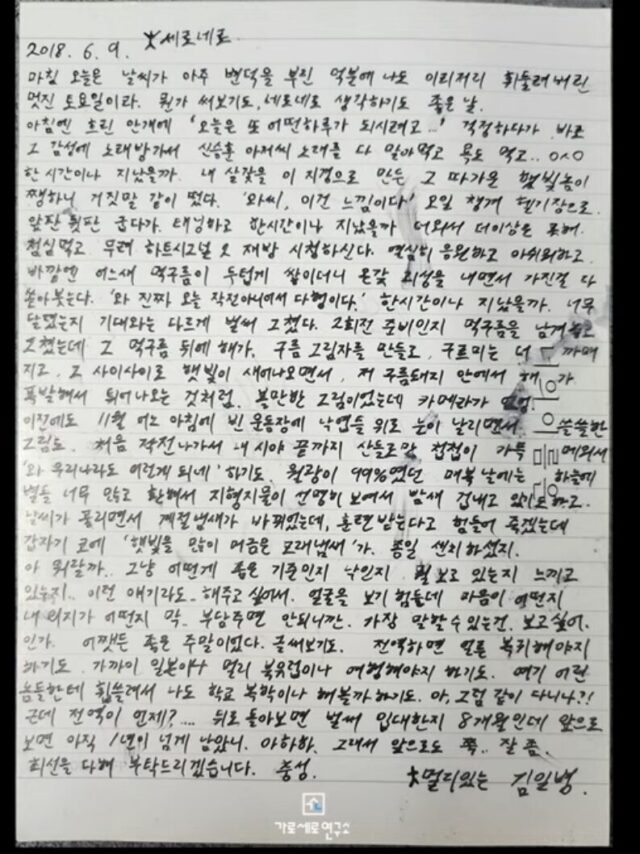 2018. 6. 9. ★세로네로
마침 오늘은 날씨가 아주 변덕을 부린 덕분에 나도 이리저리 휘둘려버린
멋진 토요일이라. 뭔가 써보기도, 네로네로 생각하기도 좋은 날.
아침엔 흐린 안개에 '오늘은 또 어떤하루가 되시려고...' 걱정하다가 바로
그 감성에 노래방가서 신승훈 아저씨 노래를 다 말아먹고 욕도 먹고.. ㅇㅅㅇ
한시간이나 지났을까. 내 살갗을 이 지경으로 만든 그 따가운 햇빛놈이
쨍하니 거짓말 같이 떴다. '와씨, 이건 느낌이다' 오일 챙겨 헬기장으로.
앞판 뒷판 굽다가. 태닝하고 한시간이나 지났을까 더워서 더이상은 못해.
점심먹고 무려 하트시그널 2 재방 시청하신다. 열심히 응원하고 아쉬워하고.
바깥엔 어느새 먹구름이 두텁게 쌓이더니 온갖 괴성을 내면서 가진걸 다
쏟아붓는다. '와 진짜 오늘 작전아니여서 다행이다.' 한시간이나 지났을까. 너무
달랬는지 기대와는 다르게 벌써 그쳤다. 2회전 준비인지 먹구름을 남겨놓고
그쳤는데 그 먹구름 뒤에 해가. 구름 그림자를 만들고, 구르미는 더 까매
지고, 그 사이사이로 햇빛이 새어나오면서, 저 구름돼지 안에서 해가
폭발해서 튀어나오는 것처럼. 볼만한 그림이었는데 카메라가 없엄
이전에도 11월 어느 아침에 빈 운동장에 낙엽들 위로 눈이 날리면서 쓸쓸한
그림도. 처음 작전나가서 내 시야 끝까지 산들로만 첩첩이 가득 메워서
'와 우리나라도 이렇게 되네' 하기도. 월광이 99%였던 매복 날에는 하늘에
별들 너무 많고 환해서 지형지물이 선명히 보여서 밤새 겁내고 있기도하고.
날씨가 풀리면서 계절냄새가 바뀌었는데, 훈련받는다고 힘들어 죽겠는데
갑자기 코에 '햇빛을 많이 머금은 모래냄새'가. 종일 센치하셨지.
아 뭐랄까.. 그냥 어떻게 좋은 기준인지 낙인지 뭘 보고 있는지 느끼고
있는지.. 이런 얘기라도.. 해주고 싶어서. 얼굴을 보기 힘들데 마음이 어떤지
내 의지가 어떤지 막.. 부담주면 안되니깐. 가장 말할수 있는건. 보고싶어.
인가. 어쨌든 좋은 주말이었다. 글써보기도. 전역하면 얼른 복귀해야지
하기도. 가까이 일본이나 멀리 북유럽이나 여행해야지 하기도. 여기 어린
놈들한테 휩쓸려서 나도 학교 복학이나 해볼까 하기도. 아, 그럼 같이 다니나?!
근데 전역이 언제?.... 뒤로 돌아보면 벌써 입대한지 8개월인데 앞으로
보면 아직 1년이 넘게 남았니. 아하하. 그래서 앞으로도 쭉.. 잘 좀.
최선을 다해 부탁드리겠습니다. 충성.
★멀리있는 김일병.
가로세로연구소